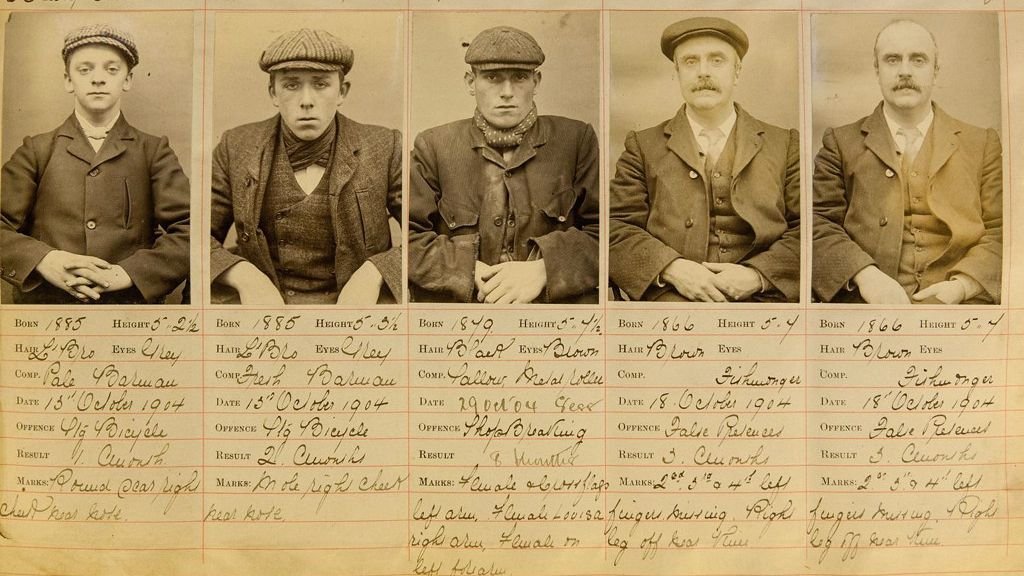 BORN 1885 HEIGHT 5-2½
HAIR L' Bro EYES Grey
COMP. Pale Barman
DATE 15" October 1904
OFFENCE Stg Bicycle
RESULT 1. Month
MARKS: Round scar right
cheek near nose.
BORN 1885 HEIGHT 5-3½
HAIR L' Bro EYES Grey
COMP. Fresh Barman
DATE 15" October 1904
OFFENCE Stg Bicycle
RESULT 2. Months
MARKS: Mole right cheek
near nose.
BORN 1879 HEIGHT 5-4½
HAIR Black EYES Brown
COMP. Sallow Metal roller
DATE 29 Oct 04
OFFENCE Shop Breaking
RESULT 8 months
MARKS: Female & Cross flags
left arm, Female Louisa
right arm, Female on
left forearm
BORN 1866 HEIGHT 5-4
HAIR Brown EYES
COMP. Fishmonger
DATE 18. October 1904
OFFENCE False Pretences
RESULT 3. Months
MARKS: 2nd 3rd & 4th left
fingers missing, Right
leg off near knee
BORN 1866 HEIGHT 5-4
HAIR Brown EYES
COMP. Fishmonger
DATE 18' October 1904
OFFENCE False Pretences
RESULT 3. Months
MARKS: 2nd 3rd & 4th left
fingers missing, Right
leg off near knee